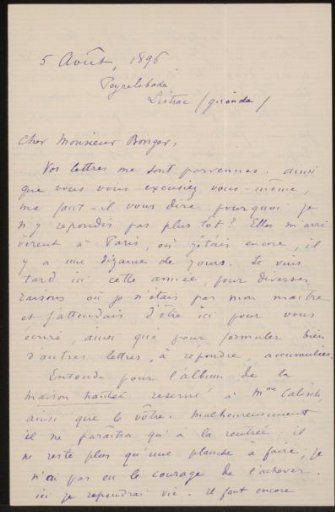 5 Août, 1896
Peyrelebade
Listrac (gironde)
Cher Monsieur Bonger,
Vos lettres me sont parvenues. ainsi
que vous vous excusiez vous-même,
me faut-il vous dire pourquoi je
n'y repondis pas plus tot? Elles m'arri
vèrent à Paris, où j'étais encore, il
y a une dizaine de jours. Je vins
tard ici, cette année, pour diverses
raisons où je n'étais pas mon maitre
et j'attendais d'être ici pour vous
ecrire, ainsi que pour formuler bien
d'autres lettres, à repondre, accumulées.
Entendu pour l'album de la
maison hantée reservé à Mme
ainsi que le vôtre. Malheureusement
il ne paraîtra qu'à la rentrée, il
ne reste plus qu'une planche à faire, je
n'ai pas eu le courage de l'achever.
ici je reprendrai vie. il faut encore